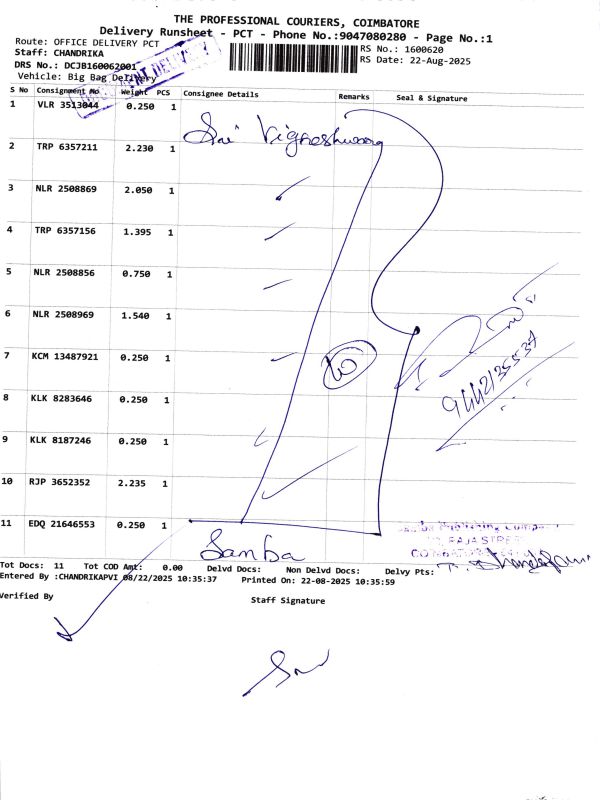 THE PROFESSIONAL COURIERS, COIMBATORE
Delivery Runsheet - PCT - Phone No.:9047080280 - Page No.:1
Route: OFFICE DELIVERY PCT
RS No.: 1600620
Staff: CHANDRIKA
RS Date: 22-Aug-2025
DRS No.: DCJB160062001
Vehicle: Big Bag Delivery
S No Consignment No Weight PCS Consignee Details Remarks Seal & Signature
1 VLR 3513044 0.250 1
Sri Vigneshwara
2 TRP 6357211 2.230 1
3 NLR 2508869 2.050 1
4 TRP 6357156 1.395 1
5 NLR 2508856 0.750 1
6 NLR 2508969 1.540 1
7 KCM 13487921 0.250 1
10
9442135537
8 KLK 8283646 0.250 1
9 KLK 8187246 0.250 1
10 RJP 3652352 2.235 1
11 EDQ 21646553 0.250 1
Samba Publishing Company
RAJA STREET
Samba
Tot Docs: 11 Tot COD Amt: 0.00 Delvd Docs: Non Delvd Docs: Delvy Pts:
Entered By :CHANDRIKAPVI 08/22/2025 10:35:37 Printed On: 22-08-2025 10:35:59
Verified By
Staff Signature